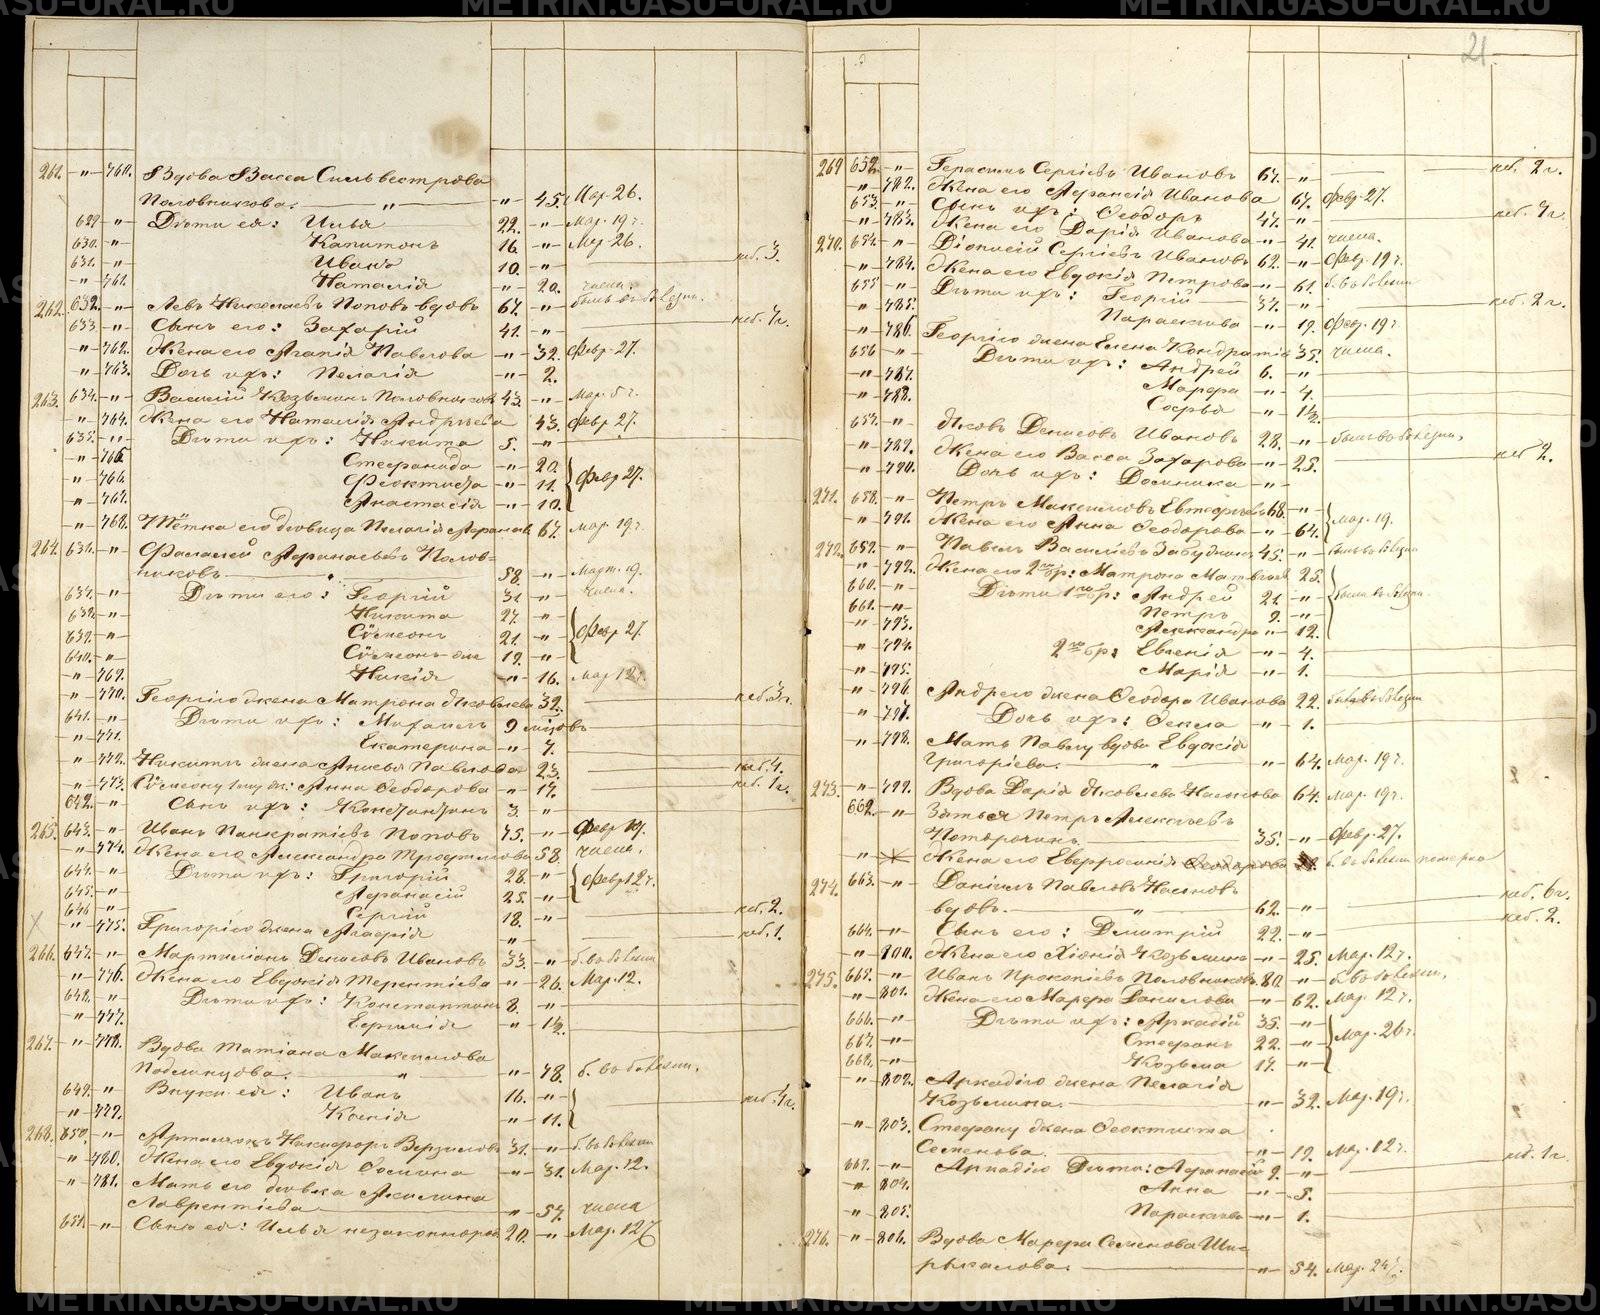 21.
261. " 760. Вдова Васса Сильвестрова
Половникова. " " 45. Мар. 26.
629 " Дѣти ея: Илья 22. " Мар. 19 г.
630. " Капитонъ 16. " Мар. 26.
631. " Иванъ 10. " неб. 3.
" 761. Наталія " 20.
262. 632. " Левъ Николаевъ Поповъ вдовъ 67. " былъ въ болезни.
633 " Сынъ его: Захарій 41. " неб. 7 г.
" 762. Жена его Агапія Павлова " 32. Февр. 27.
" 763. Дочь ихъ: Пелагія " 2.
263. 634. " Василій Козьминъ Половниковъ 43. " Мар. 5 г.
" 764. Жена его Наталія Андрѣева " 43. Февр. 27.
635. " Дѣти ихъ: Никита 5. "
" 765 Стефанида " 20.
" 766. Феоктиста " 11. Февр. 27.
" 767. Анастасія " 10.
" 768. Тётка его дѣвица Пелагія 67. мар. 19 г.
264. " Афанасьевъ Полов-
никовъ " 58. " Март. 19.
637. " Дѣти его: Георгій 31 " числа.
638. " Никита 27. "
639. " Сѵмеонъ 21. " Февр 27.
640. " Сѵмеонъ 19. "
" 769. " 16. мар 12 г.
" 770. Георгію жена Матрона Яковлева 32. неб. 3 г.
641. " Дѣти ихъ: Михаилъ 9 "
" 771. Екатерина " 7.
" 772. Никиты жена Анисья Павлова 23. неб. 4.
" 773. Сѵмеону жена: Анна Ѳеодорова " 17. неб. 1 г.
642. " Сынъ ихъ: Константинъ 3. "
265. 643. " Иванъ Панкратіевъ Поповъ 75. " Февр 19.
" 774. Жена его Александра Трофимова 58. числа.
644. " Дѣти ихъ: Григорій 28. "
645. " Афанасій 25. " Февр 12 г.
646 " Сергій 18. " неб. 2.
" 775. Григорію жена " неб. 1.
266. 647. " Мартиніанъ Денисовъ Ивановъ 33. " б. въ болезни
" 776. Жена его Евдокія Терентіева " 26. Мар. 12.
648. " Дѣти ихъ: Константинъ 8. "
" 777. " 1½.
267. " 778. Вдова Татіана Максимова
" " 78. б. въ болезни.
649. " Внуки ея: Иванъ 16. "
" 779. Ксенія " 11. неб. 1 г.
268. 650. " Никифоръ 31. " б. въ болезни
" 780. Жена его Евдокія Фомина " 31. Мар. 12.
" 781. Мать его дѣвка Акилина
Лаврентіева " 57. числа
651. " Сынъ ея: Илья незаконнорож. 20. " Мар. 12 г.
269 652. " Герасимъ Сергіевъ Ивановъ 67. " неб. 2 г.
" 782. Жена его Афанасія Иванова " 67. Февр. 27.
653. " Сынъ ихъ: Ѳеодоръ 47. " неб. 7 г.
" 783. Жена его Дарія Иванова " 41. числа.
270. 654. " Діонисій Сергіевъ Ивановъ 62. " Февр. 19 г.
" 784. Жена его Евдокія Петрова " 61. б. въ болезни
655 " Дѣти ихъ: Георгій 37. " неб. 2 г.
" 785. Параскева " 19. Февр. 19 г.
" 786. Георгію жена Елена Кондратіе 35. числа.
656 " Дѣти ихъ: Андрей 6. "
" 787. Марфа " 4.
" 788. Софья " 1½.
657. " Яковъ Денисовъ Ивановъ 28. " былъ въ болезни.
" 789. Жена его Васса Захарова " 25. неб 2.
" 790. Дочь ихъ: Домника "
271. 658. " Петръ Максимовъ 68. "
" 791. Жена его Анна Ѳеодорова " 64. Мар. 19.
272. 659. " Павелъ Васильевъ 45. " былъ въ болезни
" 792. Жена его 2го бр: Матрона Матвѣева 25.
660. " Дѣти 1го бр: Андрей 21. " были въ болезни.
661. " Петръ 9. "
" 793. Александра " 12.
" 794. 2го бр: Евгенія " 4.
" 795. Марія " 1.
" 796. Андрею жена Ѳеодора Иванова 22. была въ болезни
" 797. Дочь ихъ: Ѳекла " 1.
" 798. Мать Павлу вдова Евдокія
Григоріева. " " 64. Мар. 19 г.
273. " 799. Вдова Дарія Яковлева 64. Мар. 19 г.
662. " Зятья Петръ Алексѣевъ
35. " Февр. 27.
" Жена его Евфросинія Ѳеодорова б. въ болезни померла
274. 663. " Даніилъ Павловъ неб. 6 г.
вдовъ. " 62. "
664. " Сынъ его: Димитрій 22. " неб. 2.
" 800. Жена его Хіонія Козьмина " 25. Мар. 12 г.
275. 665. " Иванъ Прокопіевъ Половниковъ 80. " б. въ болезни.
" 801. Жена его Марфа Данилова " 62. Мар. 12 г.
666. " Дѣти ихъ: Аркадій 35. "
667. " Стефанъ 22. " Мар. 26 г.
668. " Козьма 17. "
" 802. Аркадію жена Пелагія
Козьмина. " 32. Мар. 19 г.
" 803. Стефану жена Ѳеоктиста
Семенова. " 19. Мар. 12 г.
669. " Аркадію Дѣти: Афанасій 9. " неб. 1 г.
" 804. Анна " 5.
" 805. Параскева " 1.
276. " 806. Вдова Марфа Семенова Ши-
рыкалова. " 54. Мар. 24 г.
METRIKI.GASU-URAL.RU